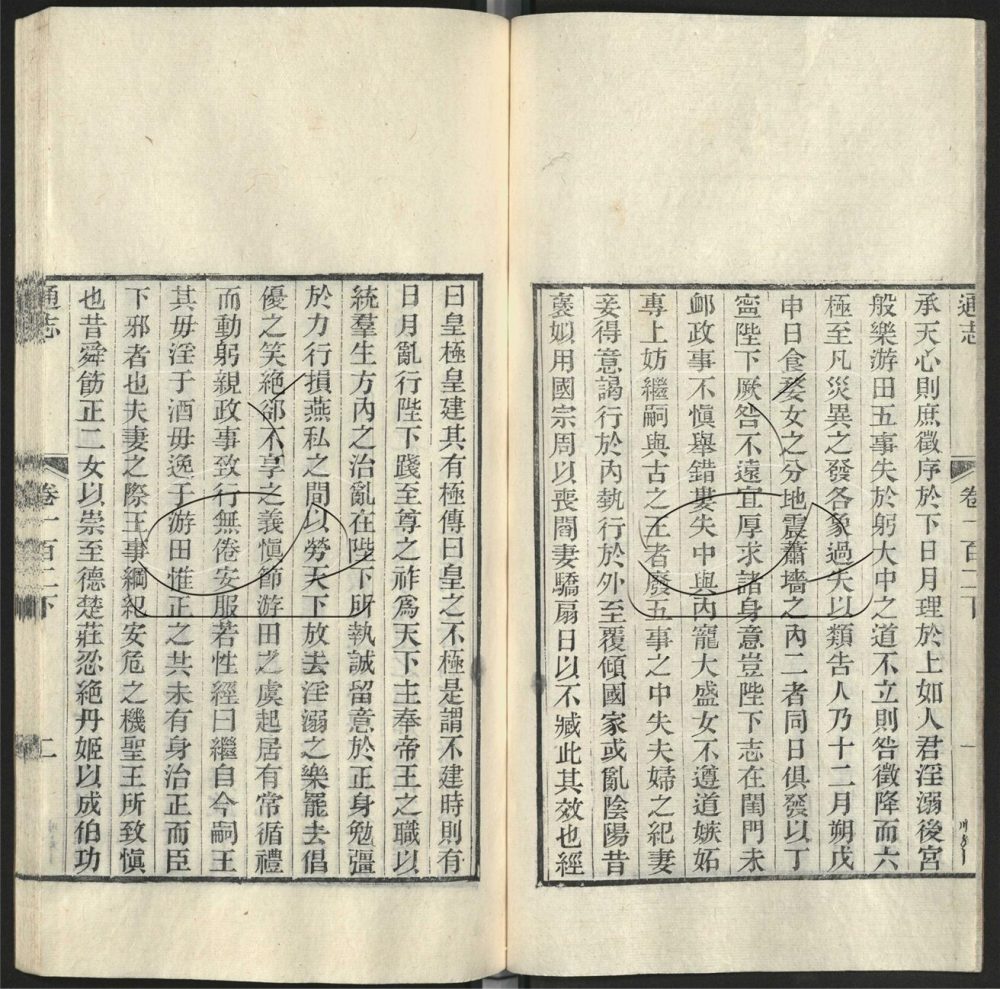 通志
卷一百二下
一
承天心則庶徵序於下日月理於上如人君淫溺後宮
般樂游田五事失於躬大中之道不立則咎徵降而六
極至凡災異之發各象過失以類告人乃十二月朔戊
申日食婺女之分地震蕭墻之內二者同日俱發以丁
寍陛下厥咎不遠宜厚求諸身意豈陛下志在閨門未
衈政事不愼舉錯婁失中與內寵大盛女不遵道嫉妬
專上妨繼嗣與古之王者廢五事之中失夫婦之紀妻
妾得意謁行於內執行於外至覆傾國家或亂陰陽昔
襃姒用國宗周以喪閻妻驕扇日以不臧此其效也經
曰皇極皇建其有極傳曰皇之不極是謂不建時則有
日月亂行陛下踐至尊之祚爲天下主奉帝王之職以
統羣生方內之治亂在陛下所執誠留意於正身勉彊
於力行損燕私之閒以勞天下放去淫溺之樂罷去倡
優之笑絶卻不享之義愼節游田之虞起居有常循禮
而動躬親政事致行無倦安服若性經曰繼自今嗣王
其毋淫于酒毋逸于游田惟正之共未有身治正而臣
下邪者也夫妻之際王事綱紀安危之機聖王所致愼
也昔舜飭正二女以崇至德楚莊忍絶丹姬以成伯功
通志
卷一百二下
二